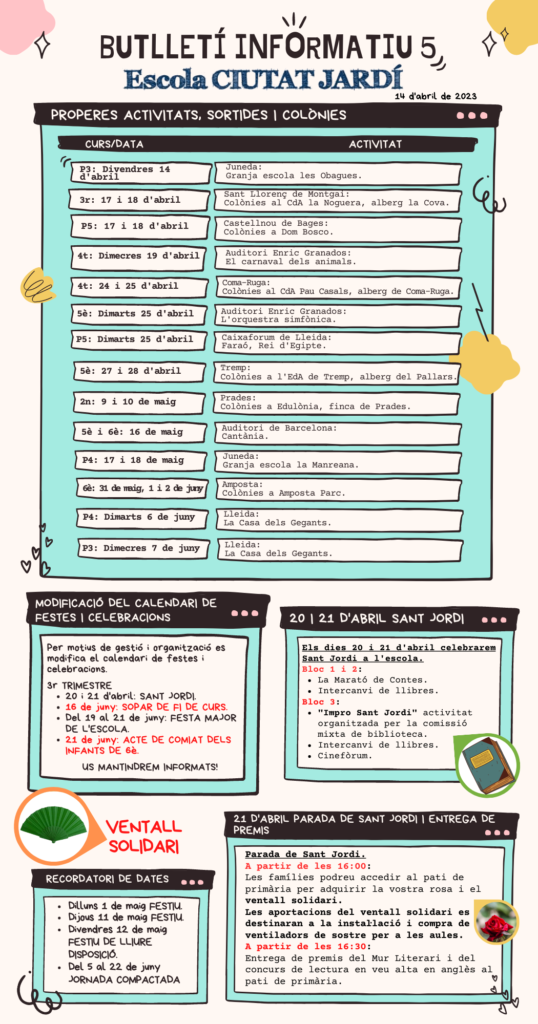 BUTLLETÍ INFORMATIU 5
Escola CIUTAT JARDÍ
14 d'abril de 2023
PROPERES ACTIVITATS, SORTIDES I COLÒNIES
CURS/DATA ACTIVITAT
P3: Divendres 14 d'abril
Juneda:
Granja escola les Obagues.
3r: 17 i 18 d'abril
Sant Llorenç de Montgai:
Colònies al CdA la Noguera, alberg la Cova.
P5: 17 i 18 d'abril
Castellnou de Bages:
Colònies a Dom Bosco.
4t: Dimecres 19 d'abril
Auditori Enric Granados:
El carnaval dels animals.
4t: 24 i 25 d'abril
Coma-Ruga:
Colònies al CdA Pau Casals, alberg de Coma-Ruga.
5è: Dimarts 25 d'abril
Auditori Enric Granados:
L'orquestra simfònica.
P5: Dimarts 25 d'abril
Caixaforum de Lleida:
Faraó, Rei d'Egipte.
5è: 27 i 28 d'abril
Tremp:
Colònies a l'EdA de Tremp, alberg del Pallars.
2n: 9 i 10 de maig
Prades:
Colònies a Edulònia, finca de Prades.
5è i 6è: 16 de maig
Auditori de Barcelona:
Cantània.
P4: 17 i 18 de maig
Juneda:
Granja escola la Manreana.
6è: 31 de maig, 1 i 2 de juny
Amposta:
Colònies a Amposta Parc.
P4: Dimarts 6 de juny
Lleida:
La Casa dels Gegants.
P3: Dimecres 7 de juny
Lleida:
La Casa dels Gegants.
MODIFICACIÓ DEL CALENDARI DE
FESTES I CELEBRACIONS
Per motius de gestió i organització es
modifica el calendari de festes i
celebracions.
3r TRIMESTRE
• 20 i 21 d'abril: SANT JORDI.
• 16 de juny: SOPAR DE FI DE CURS.
• Del 19 al 21 de juny: FESTA MAJOR
DE L'ESCOLA.
• 21 de juny: ACTE DE COMIAT DELS
INFANTS DE 6è.
US MANTINDREM INFORMATS!
20 I 21 D'ABRIL SANT JORDI
Els dies 20 i 21 d'abril celebrarem
Sant Jordi a l'escola.
Bloc 1 i 2:
• La Marató de Contes.
• Intercanvi de llibres.
Bloc 3:
• "Impro Sant Jordi" activitat
organitzada per la comissió
mixta de biblioteca.
• Intercanvi de llibres.
• Cinefòrum.
VENTALL
SOLIDARI
RECORDATORI DE DATES
• Dilluns 1 de maig FESTIU.
• Dijous 11 de maig FESTIU.
• Divendres 12 de maig
FESTIU DE LLIURE
DISPOSICIÓ.
• Del 5 al 22 de juny
JORNADA COMPACTADA
21 D'ABRIL PARADA DE SANT JORDI I ENTREGA DE
PREMIS
Parada de Sant Jordi.
A partir de les 16:00:
Les famílies podreu accedir al pati de
primària per adquirir la vostra rosa i el
ventall solidari.
Les aportacions del ventall solidari es
destinaran a la instal·lació i compra de
ventiladors de sostre per a les aules.
A partir de les 16:30:
Entrega de premis del Mur Literari i del
concurs de lectura en veu alta en anglès al
pati de primària.